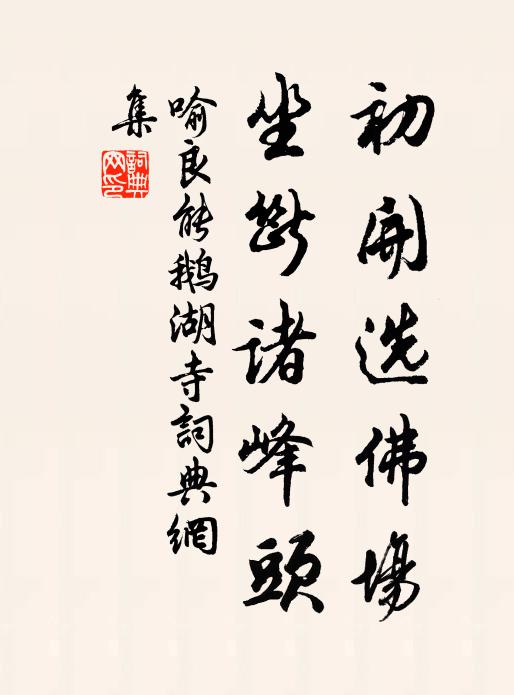 初開选佛場
坐斷諸峰頭
喻良能鵝湖寺詞典網
集
詞典
网印